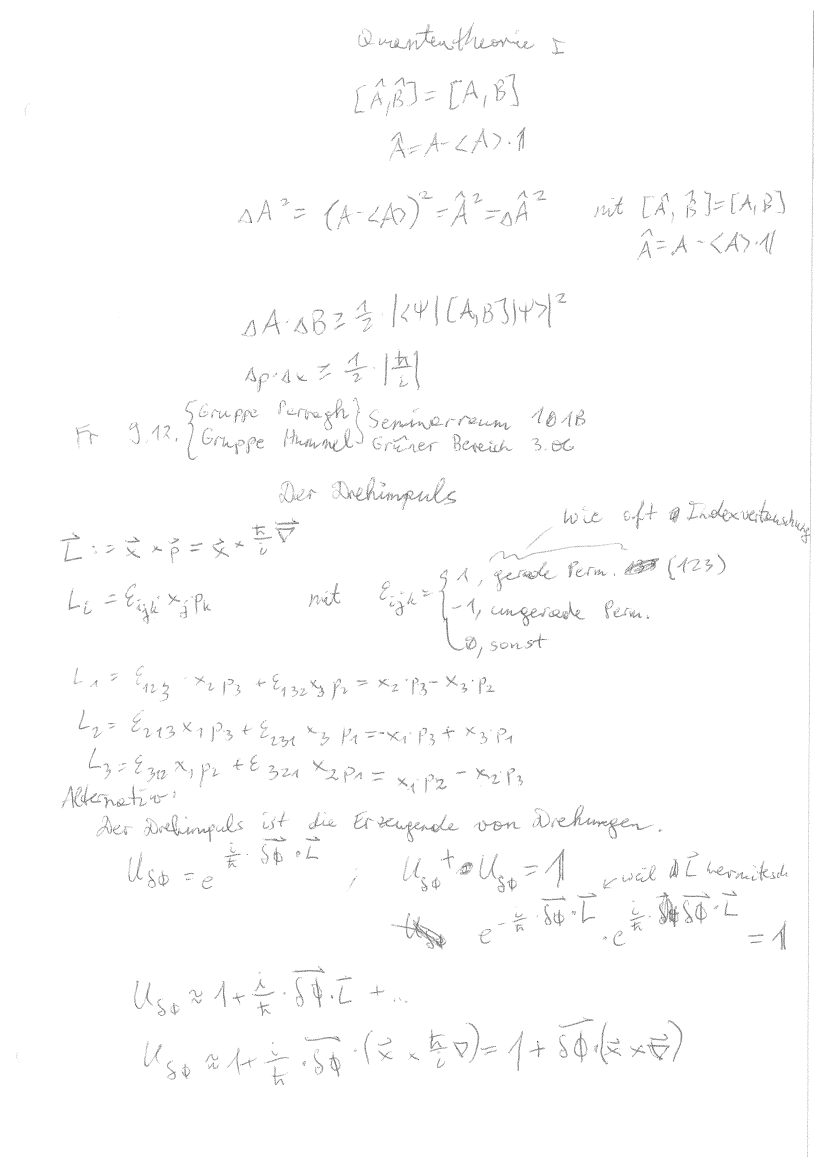 Quantentheorie I
[Â,B̂] = [A,B]
Â = A-<A>·𝟙
ΔA² = (A-<A>)² = Â² = ΔÂ² mit [Â, B̂] = [A,B]
Â = A - <A>·𝟙
ΔA·ΔB ≥ 1/2 · |<Ψ|[A,B]|Ψ>|²
Δp·Δx ≥ 1/2 · |ħ/i|
Fr 9.12. { Gruppe } Seminarraum 101B
Gruppe Hummel Grüner Bereich 3.OG
Der Drehimpuls
wie oft Indexvertauschung
L⃗ := x⃗ × p⃗ = x⃗ × ħ/i ∇⃗
L_i = ε_ijk x_j p_k mit ε_ijk = { 1, gerade Perm. (123)
-1, ungerade Perm.
0, sonst
L₁ = ε₁₂₃ · x₂ p₃ + ε₁₃₂ x₃ p₂ = x₂·p₃ - x₃·p₂
L₂ = ε₂₁₃ x₁ p₃ + ε₂₃₁ x₃ p₁ = -x₁·p₃ + x₃·p₁
L₃ = ε₃₁₂ x₁ p₂ + ε₃₂₁ x₂ p₁ = x₁·p₂ - x₂·p₃
Alternativ:
Der Drehimpuls ist die Erzeugende von Drehungen.
U_δϕ = e^(i/ħ · δϕ⃗ · L⃗) ; U_δϕ⁺ · U_δϕ = 𝟙
↙ weil L⃗ hermitesch
e^(-i/ħ · δϕ⃗ · L⃗) · e^(i/ħ · δϕ⃗ · L⃗) = 𝟙
U_δϕ ≈ 1 + i/ħ · δϕ⃗ · L⃗ + ...
U_δϕ ≈ 1 + i/ħ · δϕ⃗ · (x⃗ × ħ/i ∇) = 1 + δϕ⃗ · (x⃗ × ∇⃗)